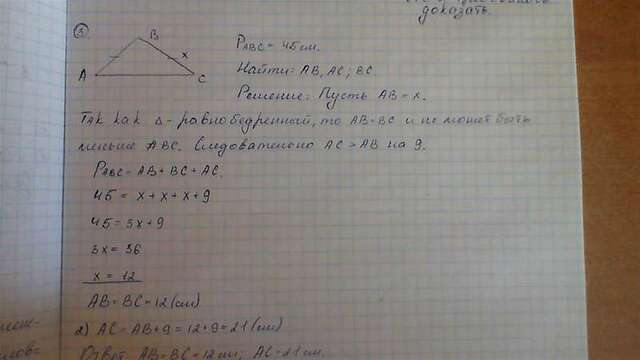 доказать.
③
B
x
A
C
PABC = 45 см.
Найти: AB, AC; BC.
Решение: Пусть AB = x.
Так как Δ - равнобедренный, то AB = BC и не может быть
меньше ABC. Следовательно AC > AB на 9.
PABC = AB + BC + AC.
45 = x + x + x + 9
45 = 3x + 9
3x = 36
x = 12
AB = BC = 12 (см)
2) AC = AB + 9 = 12 + 9 = 21 (см)
Ответ AB = BC = 12 см, AC = 21 см.